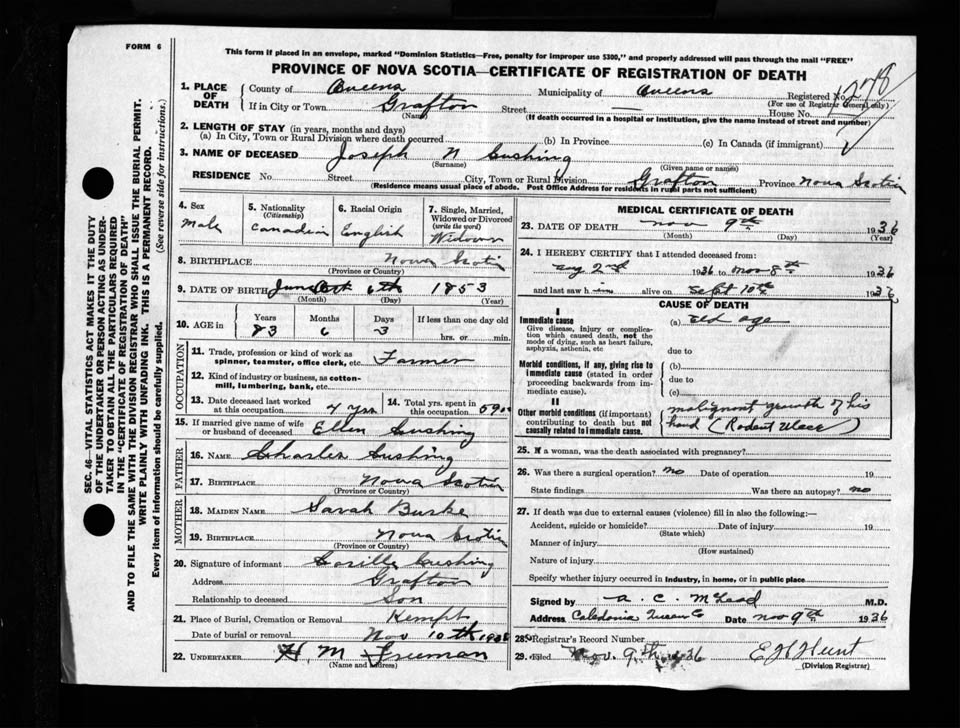 FORM 6
This form if placed in an envelope, marked "Dominion Statistics—Free, penalty for improper use $300," and properly addressed will pass through the mail "FREE"
PROVINCE OF NOVA SCOTIA—CERTIFICATE OF REGISTRATION OF DEATH
1. PLACE OF DEATH
County of Queens Municipality of Queens Registered No. 1278
(For use of Registrar General only)
If in City or Town Grafton Street — House No.
(Name) (If death occurred in a hospital or institution, give the name instead of street and number)
2. LENGTH OF STAY (in years, months and days)
(a) In City, Town or Rural Division where death occurred (b) In Province (c) In Canada (if immigrant)
3. NAME OF DECEASED Joseph N Cushing
(Surname) (Given name or names)
RESIDENCE No. Street City, Town or Rural Division Grafton Province Nova Scotia
(Residence means usual place of abode. Post Office Address for residents in rural parts not sufficient)
4. Sex
Male
5. Nationality
(Citizenship)
Canadian
6. Racial Origin
English
7. Single, Married, Widowed or Divorced
(write the word)
Widower
8. BIRTHPLACE Nova Scotia
(Province or Country)
9. DATE OF BIRTH 6th 1853
(Month) (Day) (Year)
10. AGE in
Years Months Days If less than one day old
83 6 3 hrs. or min.
OCCUPATION
11. Trade, profession or kind of work as spinner, teamster, office clerk, etc. Farmer
12. Kind of industry or business, as cotton-mill, lumbering, bank, etc.
13. Date deceased last worked at this occupation 4 yrs
14. Total yrs. spent in this occupation 59
15. If married give name of wife or husband of deceased Ellen Cushing
FATHER
16. NAME Charles Cushing
17. BIRTHPLACE Nova Scotia
(Province or Country)
MOTHER
18. MAIDEN NAME Sarah Burke
19. BIRTHPLACE Nova Scotia
(Province or Country)
20. Signature of informant Cushing
Address Grafton
Relationship to deceased Son
21. Place of Burial, Cremation or Removal Kempt
Date of burial or removal Nov 10th 1936
22. UNDERTAKER H M Freeman
(Name and address)
MEDICAL CERTIFICATE OF DEATH
23. DATE OF DEATH Nov 9th 1936
(Month) (Day) (Year)
24. I HEREBY CERTIFY that I attended deceased from:
Aug 2nd 1936 to Nov 8th 1936
and last saw him alive on Sept 10th 1936
CAUSE OF DEATH
I
Immediate cause
Give disease, injury or complication which caused death, not the mode of dying, such as heart failure, asphyxia, asthenia, etc
(a) Old age
due to
Morbid conditions, if any, giving rise to immediate cause (stated in order proceeding backwards from immediate cause).
(b)
due to
(c)
II
Other morbid conditions (if important) contributing to death but not causally related to immediate cause.
malignant growth of his
hand (Rodent Ulcer)
25. If a woman, was the death associated with pregnancy?
26. Was there a surgical operation? no Date of operation 19
State findings Was there an autopsy? no
27. If death was due to external causes (violence) fill in also the following:—
Accident, suicide or homicide? Date of injury 19
(State which)
Manner of injury
(How sustained)
Nature of injury
Specify whether injury occurred in industry, in home, or in public place
Signed by A. C. McLeod M.D.
Address Caledonia Queens Co Date Nov 9th 1936
28. Registrar's Record Number
29. Filed Nov. 9th 1936 E H Hunt
(Division Registrar)
SEC. 46—VITAL STATISTICS ACT MAKES IT THE DUTY
OF THE UNDERTAKER OR PERSON ACTING AS UNDER-
TAKER TO OBTAIN ALL THE PARTICULARS REQUIRED
IN THE "CERTIFICATE OF REGISTRATION OF DEATH"
AND TO FILE THE SAME WITH THE DIVISION REGISTRAR WHO SHALL ISSUE THE BURIAL PERMIT.
WRITE PLAINLY WITH UNFADING INK. THIS IS A PERMANENT RECORD.
Every item of information should be carefully supplied. (See reverse side for instructions.)